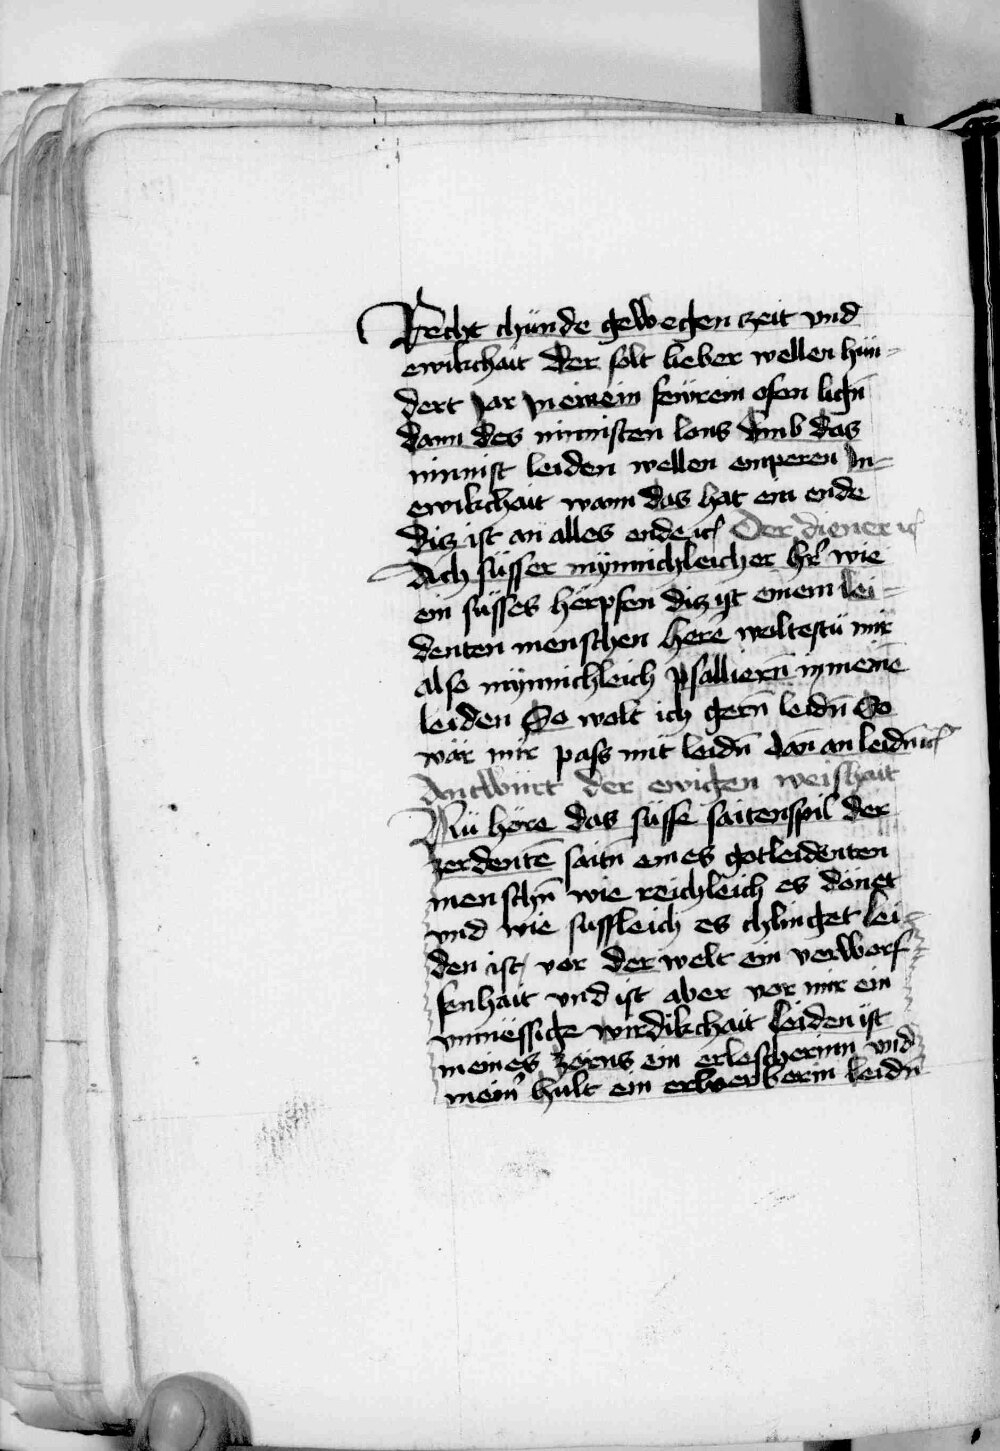 Recht chünde gewegen zeit vnd
ewikchait Der solt lieber wellen hün-
dert Jar In einem feẅrein ofen ligñ
dann des minnisten lons vmb das
minnist leiden wellen enperen In-
ewikchait wann das hat ein ende
diz ist an alles ende ꝛc Der diener ꝛc
Ach süsser mynnichleicher hꝛ̄ wie
ein süsses herpfen diz ist einem lei-
denten menschen herē woltestu mir
also mynnichleich psalliern̄ in meinē
leiden So wolt ich gern̄ leidn̄ So
wär mir pass mit leidn̄ dan̄ an leidn̄ ꝛc
Antwürt der ewigen weishait
Nu höre das süsse saitenspil der
zerdentē saitn̄ eines gotleidenten
menschn̄ wie reichleich es dönet
vnd wie sussleich es chlinget Lei-
den ist vor der welt ein verworf-
fenhait vnd ist aber vor mir ein
vnmëssige wirdikchait Leiden ist
meines zorns ein erlescherinn vnd
mein̄ hult ein erwerberin leidn̄